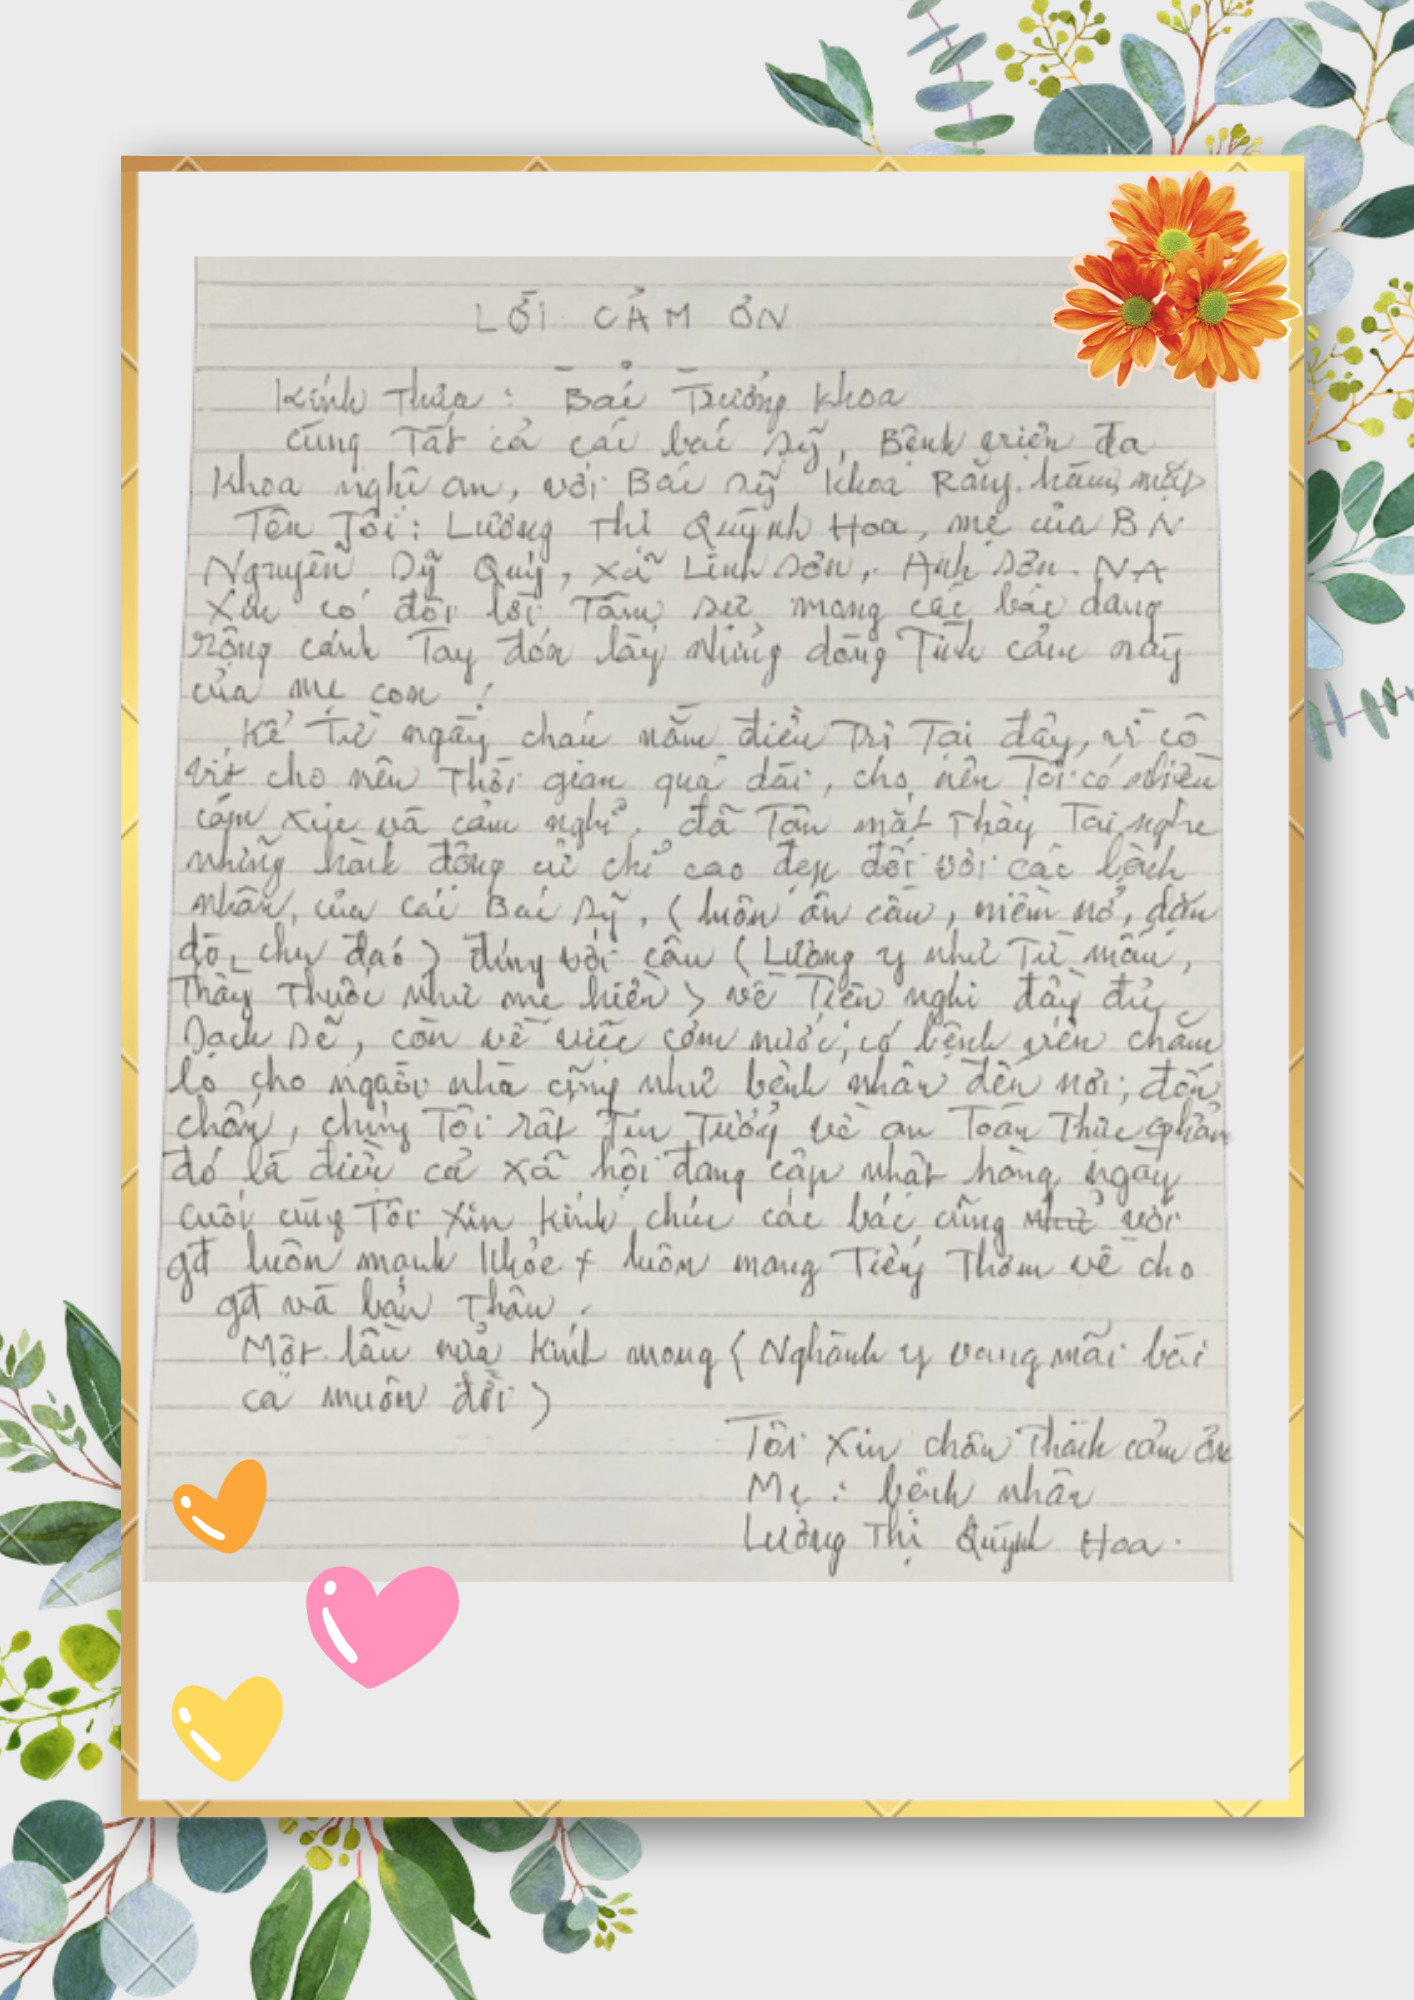 LỜI CẢM ƠN
Kính Thưa : Bác Trưởng Khoa
cùng Tất cả các bác sỹ, Bệnh viện đa
Khoa nghệ an, với Bác sỹ Khoa Răng. hàm, mặt
Tên Tôi : Lương Thị Quỳnh Hoa, mẹ của BN
Nguyễn Sỹ Quý, xã Lĩnh Sơn, Anh Sơn. NA
Xin có đôi lời Tâm sự mong các bác dang
rộng cánh Tay đón lấy những dòng Tình cảm này
của mẹ con !
Kể Từ ngày cháu nằm điều Trị Tại đây, vì cô
vít cho nên Thời gian quá dài, cho nên Tôi có nhiều
cảm xúc và cảm nghĩ. đã Tận mắt Thấy Tai nghe
những hành động cử chỉ cao đẹp đối với các bệnh
nhân, của các Bác sỹ, ( luôn ân cần, niềm nở, dặn
dò, chu đáo ) đúng với câu ( Lương y như Từ mẫu,
Thầy Thuốc như mẹ hiền ) về Tiện nghi đầy đủ
Sạch Sẽ, còn về việc cơm nước, có bệnh viện chăm
lo cho người nhà cũng như bệnh nhân đến nơi, đến
chốn, chúng Tôi rất Tin Tưởng về an Toàn Thực phẩm
đó là điều cả xã hội đang cập nhật hàng ngày
cuối cùng Tôi Xin Kính chúc các bác cùng như với
gđ luôn mạnh Khỏe + luôn mang Tiếng Thơm về cho
gđ và bản Thân.
Một lần nữa Kính mong ( Nghành y vang mãi bài
ca muôn đời )
Tôi Xin chân Thành cảm ơn
Mẹ : bệnh nhân
Lương Thị Quỳnh Hoa.